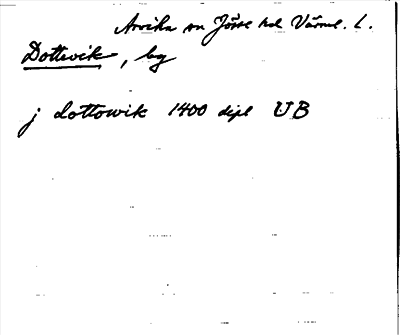 Arvika sn Jösse hd Värml. L.
Dottevik, by
j dottowik 1400 dipl UB